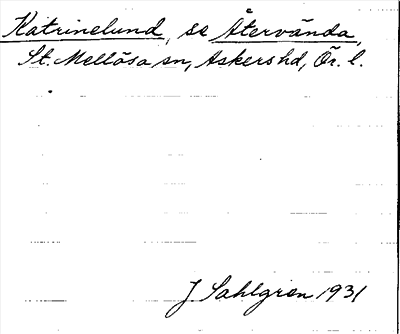 Katrinelund, se Återvända,
St. Mellösa sn, Askers hd, Ör. l.
J. Sahlgren 1931